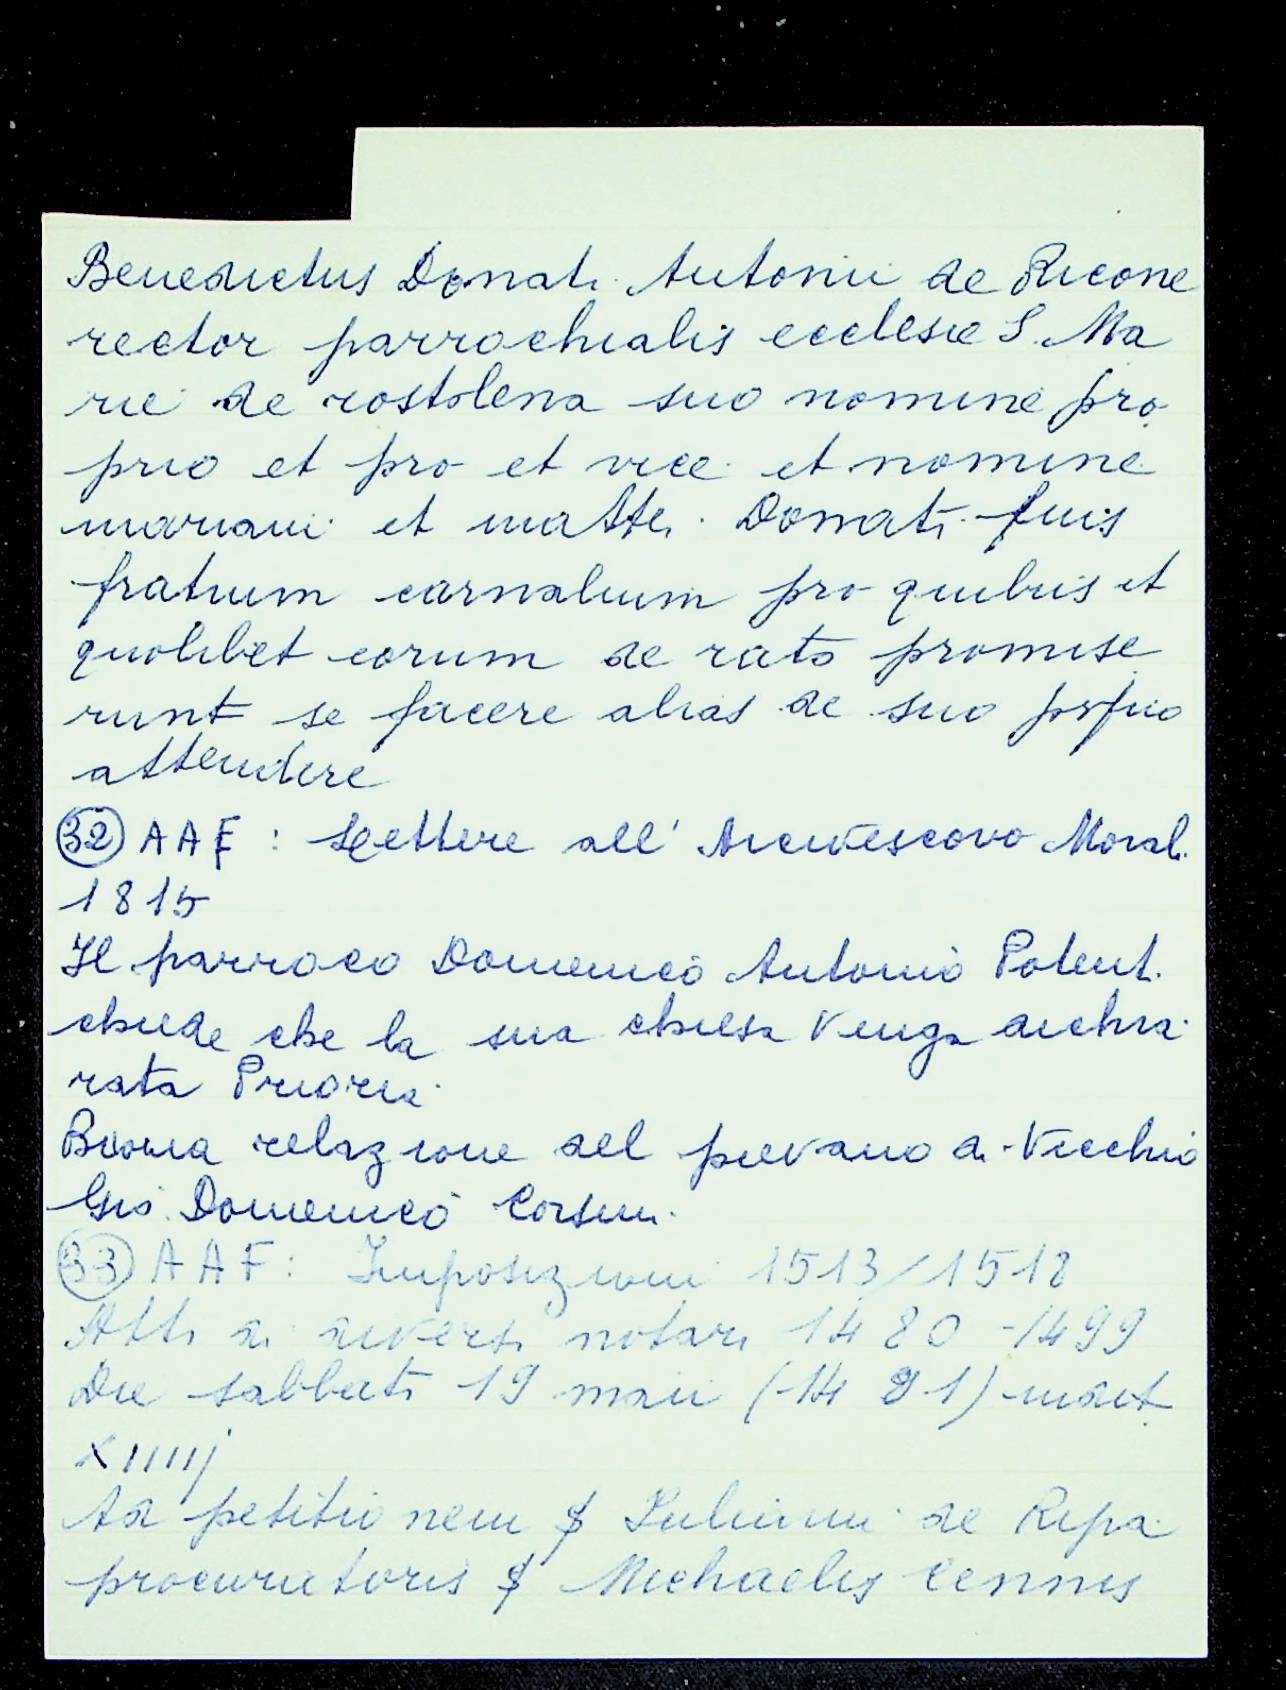 Benedictus Donati Antonii de Ricone
rector parrochialis ecclesie S. Ma
rie de rostolena suo nomine pro
prio et pro et vice et nomine
mariani et mattei Donati
fratrum carnalium pro quibus et
quolibet eorum de rato promise
runt se facere alias de suo proprio
attendere
32 AAF : Lettere all' Arcivescovo Morali
1815
Il parroco Domenico Antonio Potenti
chiede che la sua chiesa venga dichia
rata Prioria
Buona relazione del pievano di Vicchio
Gio. Domenico Corsini
33 AAF : Imposizioni 1513/1518
Atti di diversi notari 1480-1499
Die sabbati 19 maii (1481) indict
XIIIIj
Ad petitionem S Juliani de Ripa
procuratoris S Michaelis Cennis